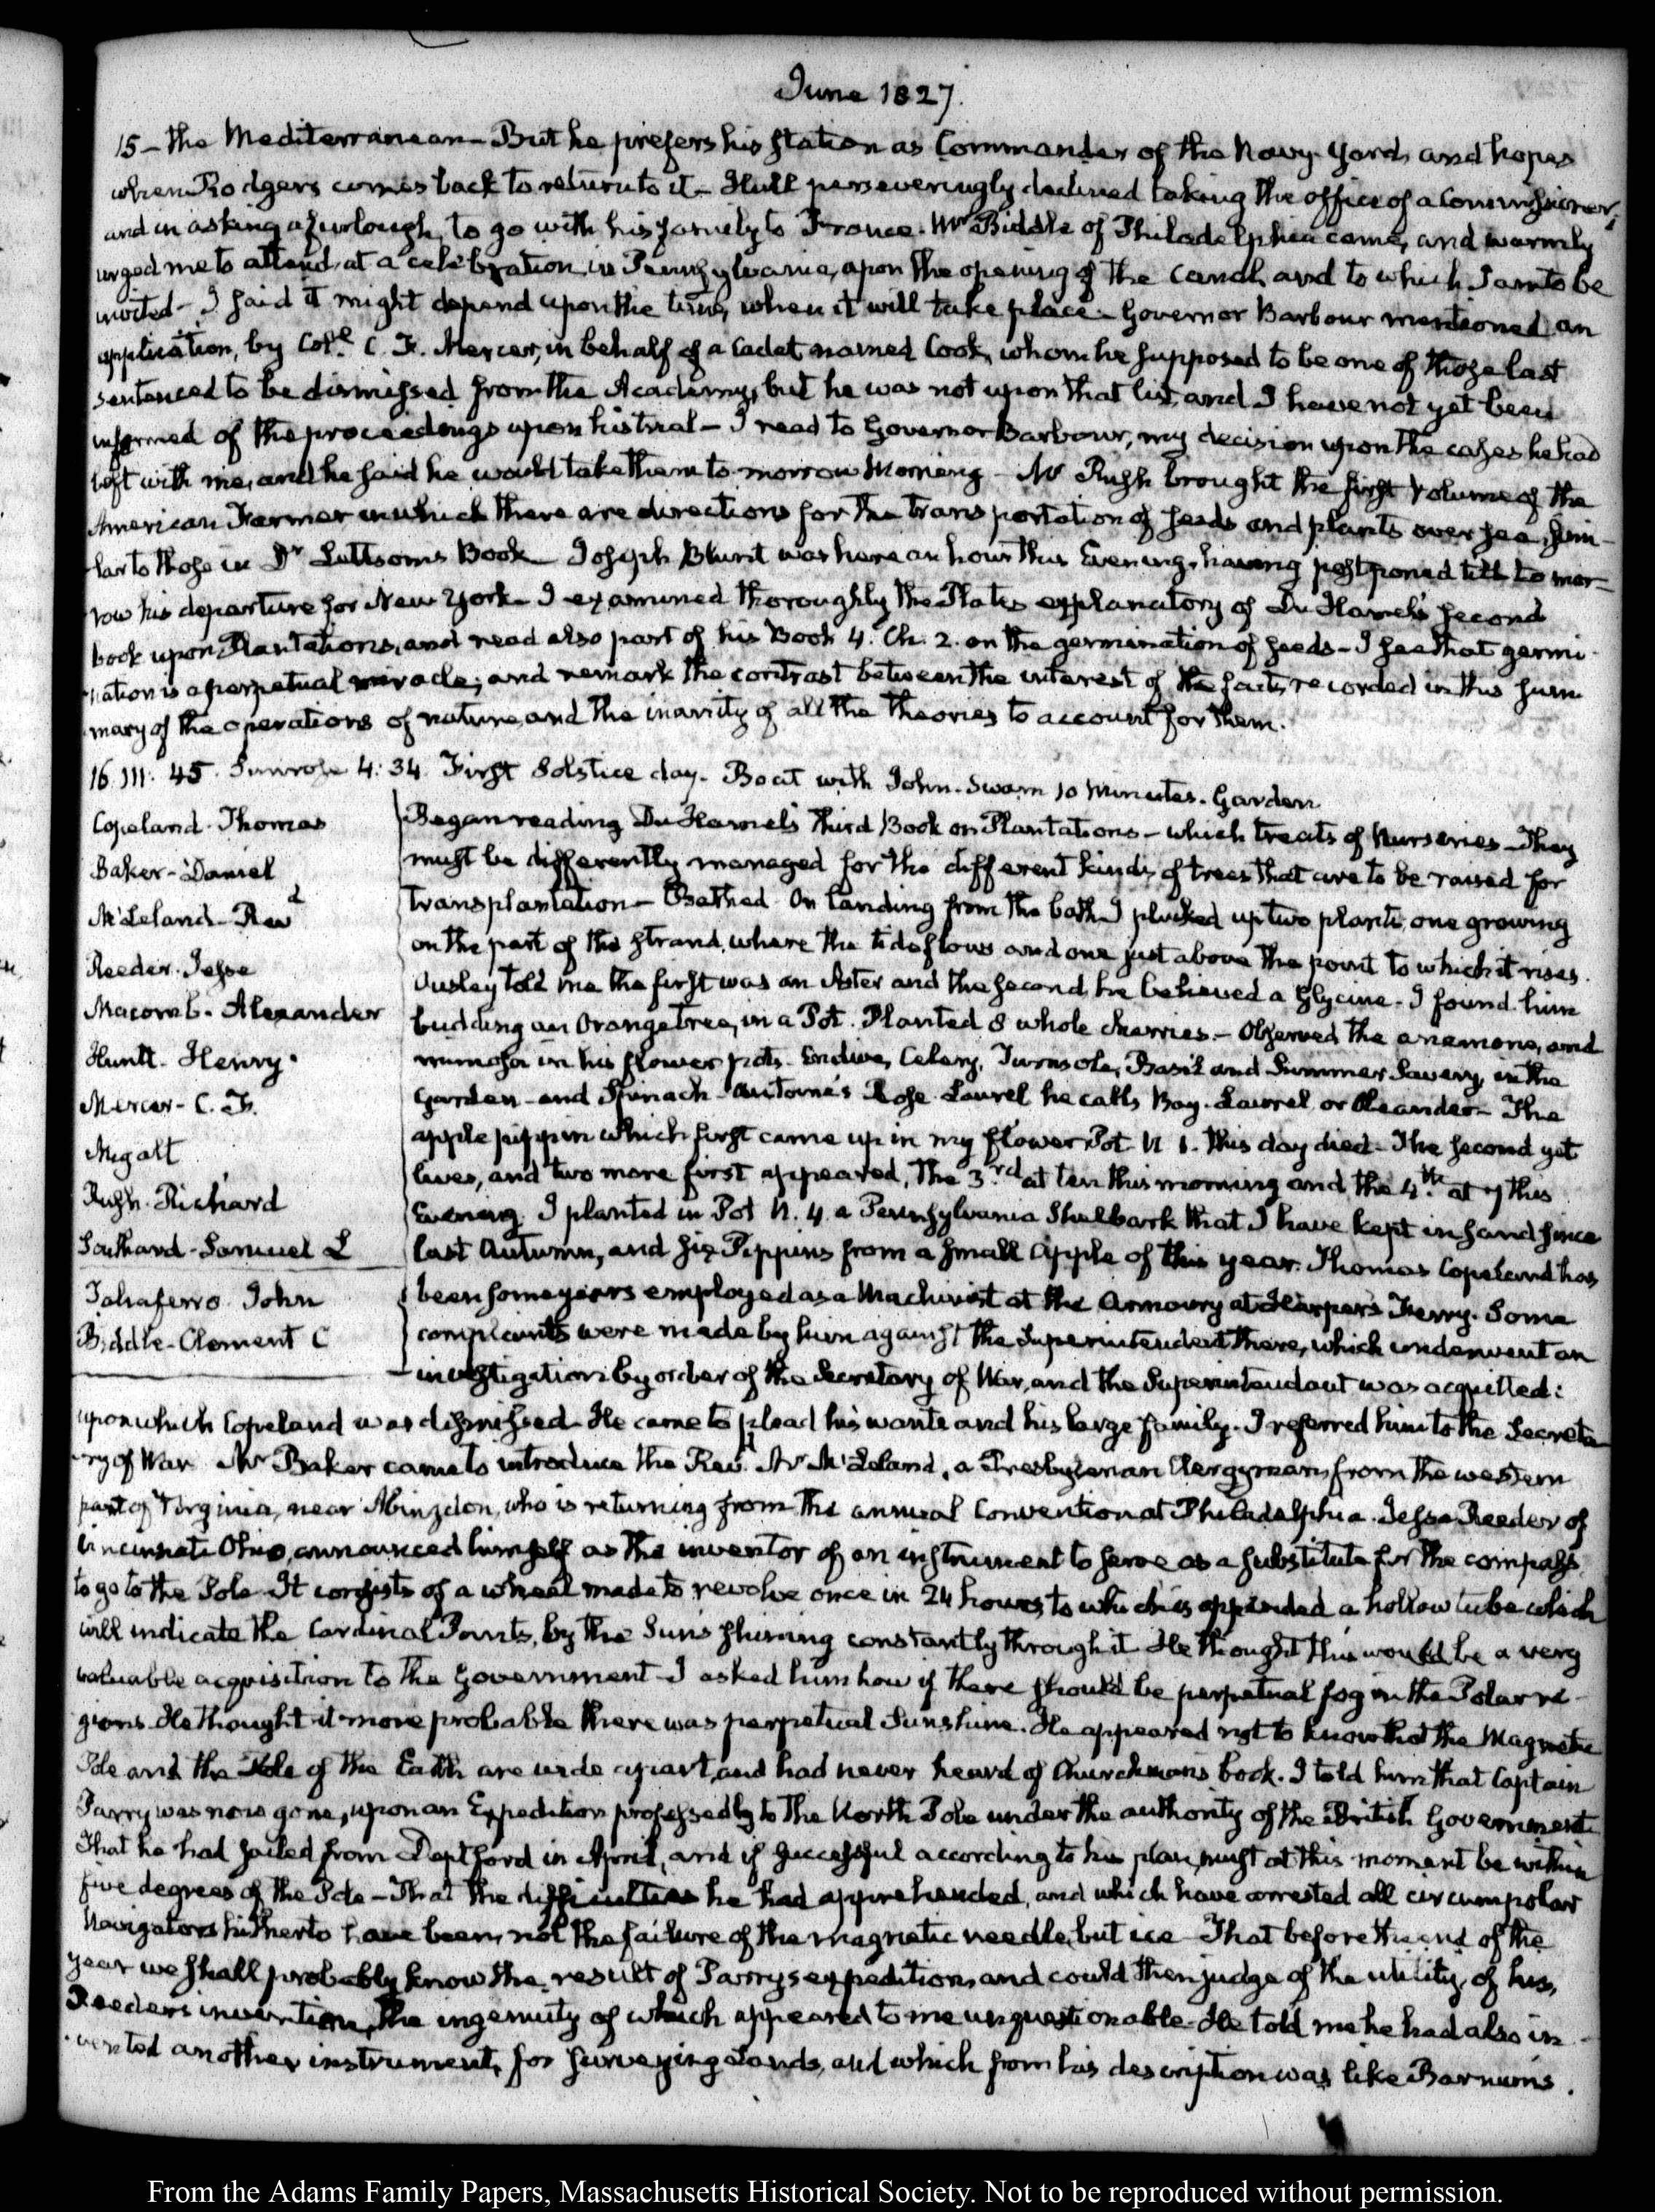 June 1827.
15 – the Mediterranean – But he prefers his station as Commander of the Navy Yard, and hopes
when Rodgers comes back to return to it – Hull perseveringly declined taking the office of a Commissioner,
and in asking a furlough, to go with his family to France. Mr Biddle of Philadelphia came, and warmly
urged me to attend, at a celebration, in Pennsylvania, upon the opening of the Canal, and to which I am to be
invited – I said it might depend upon the time, when it will take place – Governor Barbour mentioned an
application, by Coll. C. F. Mercer, in behalf of a Cadet named Cook, whom he supposed to be one of those last
sentenced to be dismissed from the Academy, but he was not upon that list, and I have not yet been
informed of the proceedings upon his trial – I read to Governor Barbour, my decision upon the cases he had
left with me, and he said he would take them to-morrow Morning – Mr Rush brought the first Volume of the
American Farmer in which there are directions for the transportation of seeds and plants over sea, simi-
-lar to those in Dr Lettsoms Book – Joseph Blunt was here an hour this Evening, having postponed till to mor-
row his departure for New York – I examined thoroughly the Plates explanatory of Du Hamel's second
book upon Plantations, and read also part of his Book 4. Ch. 2. on the germination of seeds – I see that germi-
-nation is a perpetual miracle; and remark the contrast between the interest of the facts, recorded in this sum
mary of the operations of nature, and the inanity of all the theories to account for them.
16. III. 45. Sunrose 4:34. First Solstice day. Boat with John. Swam 10 Minutes. Garden
Copeland. Thomas
Baker – Daniel
McLeland – Revd
Reeder. Jesse
Macomb. Alexander
Huntt. Henry.
Mercer – C. F.
Migatt
Rush. Richard
Southard – Samuel L
Taliaferro John
Biddle – Clement C
Began reading Du Hamel's Third Book on Plantations – which treats of Nurseries – They
must be differently managed for the different kinds of trees that are to be raised for
transplantation – Bathed. On landing from the bath I plucked up two plants, one growing
on the part of the strand, where the tide flows and one just above the point to which it rises.
Ousley told me the first was an Aster and the second, he believed a Glycine – I found him
budding an Orange tree, in a Pot. Planted 8 whole cherries. – Observed the anemone, and
mimosa in his flower pots. Endive, Celery, Turnsole, Basil and Summer Savory, in the
Garden – and Spinach – Antoine's Rose Laurel he calls Bay. Laurel or Oleander – The
apple pippin which first came up in my flower Pot N 1. this day died – The second yet
lives, and two more first appeared, the 3.rd at ten this morning and the 4.th at 7 this
Evening. I planted in Pot N. 4. a Pennsylvania Shelbark that I have kept in sand since
last Autumn, and six Pippins from a small apple of this year. Thomas Copeland has
been some years employed as a Machinist at the Armoury at Harper's Ferry. Some
complaints were made by him against the Superintendent there, which underwent an
investigation by order of the Secretary of War, and the Superintendent was acquitted:
upon which Copeland was dismissed – He came to plead his wants and his large family. I referred him to the Secreta-
-ry of War. Mr Baker came to introduce the Revd Mr McLeland, a Presbyterian Clergyman, from the western
part of Virginia, near Abingdon, who is returning from the annual Convention at Philadelphia. Jesse Reeder of
Cincinnati Ohio, announced himself as the inventor of an instrument to serve as a substitute for the compass
to go to the Pole. It consists of a wheel made to revolve once in 24 hours, to which is appended a hollow tube which
will indicate the Cardinal Points, by the Sun's shining constantly through it. He thought this would be a very
valuable acquisition to the Government – I asked him how if there should be perpetual fog in the Polar re-
gions. He thought it more probable there was perpetual Sunshine. He appeared not to know that the Magnetic
Pole and the Pole of the Earth are wide apart, and had never heard of Churchman's book. I told him that Captain
Parry was now gone, upon an Expedition professedly to the North Pole under the authority of the British Government
That he had sailed from Deptford in April, and if successful according to his plan, must at this moment be within
five degrees of the Pole – That the difficulties he had apprehended, and which have arrested all circumpolar
Navigators hitherto have been, not the failure of the magnetic needle, but ice. That before the end of the
year we shall probably know the result of Parry's expedition, and could then judge of the utility of his,
Reeder's invention, the ingenuity of which appeared to me unquestionable – He told me he had also in-
-vented another instrument, for surveying Lands, and which from his description was like Barnum's.
From the Adams Family Papers, Massachusetts Historical Society. Not to be reproduced without permission.